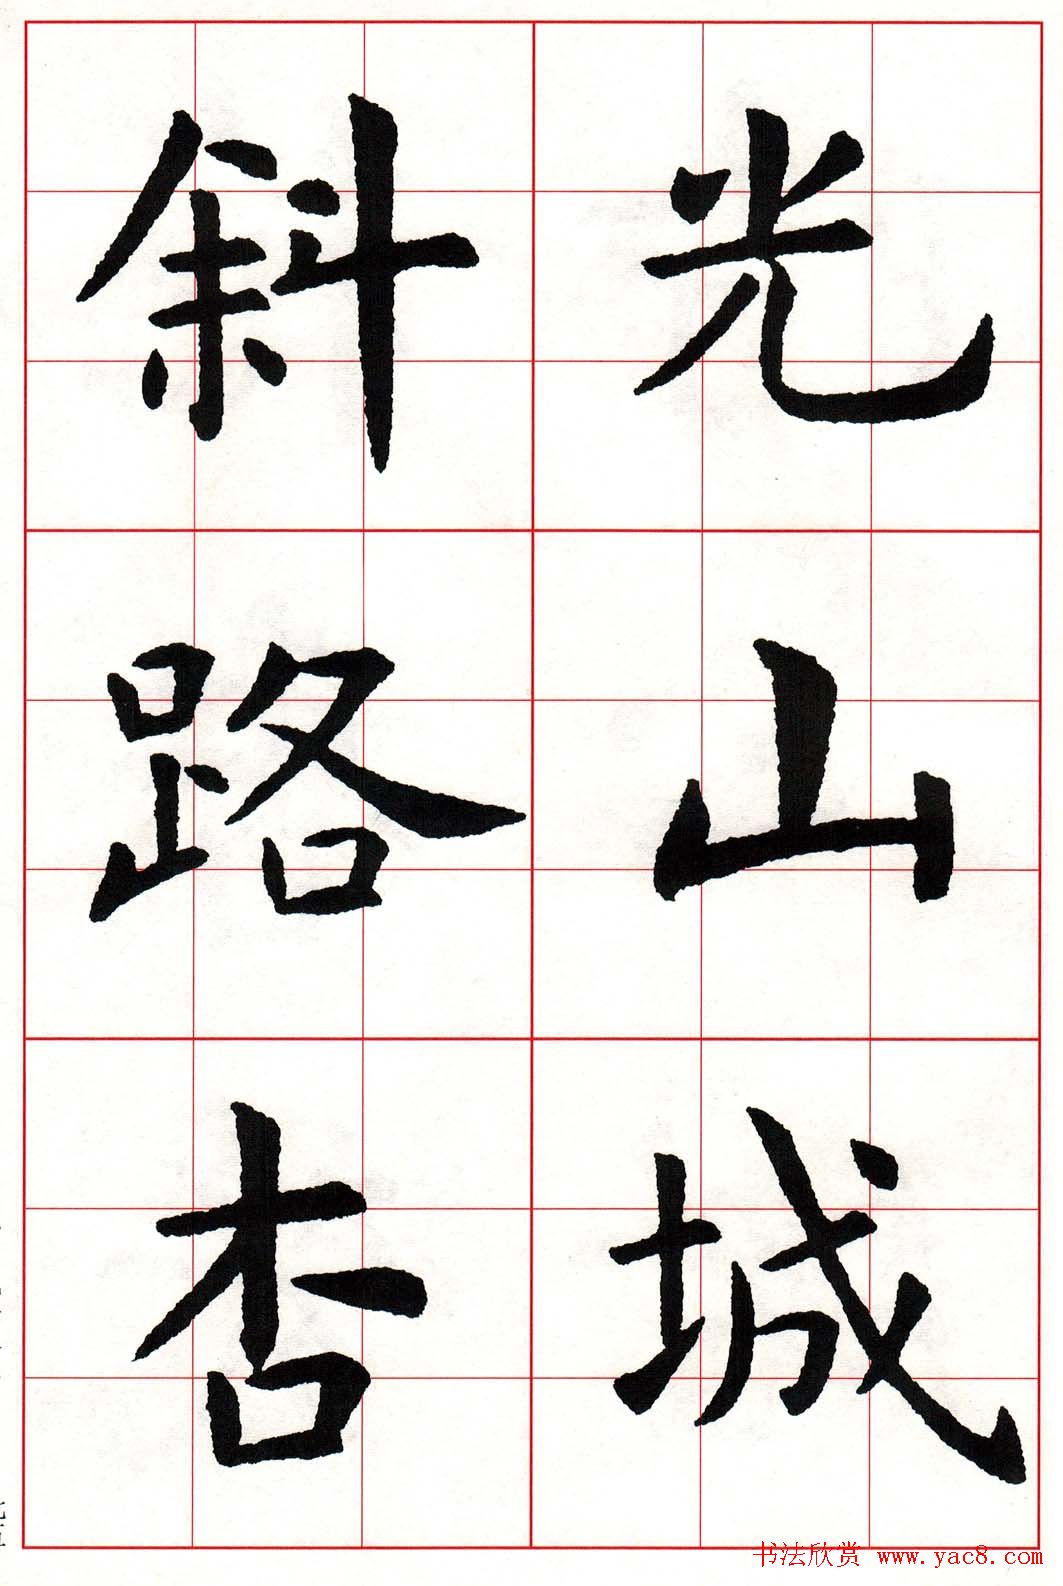 光山城
斜路杏
书法欣赏 www.yac8.com